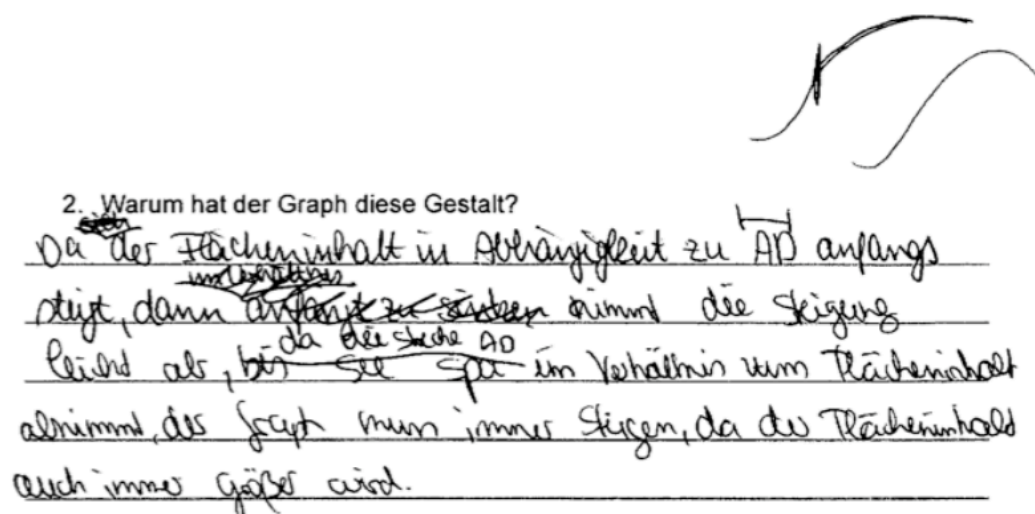 2. Warum hat der Graph diese Gestalt?
Da der Flächeninhalt in Abhängigkeit zu AD anfangs
steigt, dann anfängt zu sinken nimmt die Steigung
leicht ab, bis da die Strecke AD im Verhältnis zum Flächeninhalt
abnimmt, der Graph muss immer steigen, da der Flächeninhalt
auch immer größer wird.